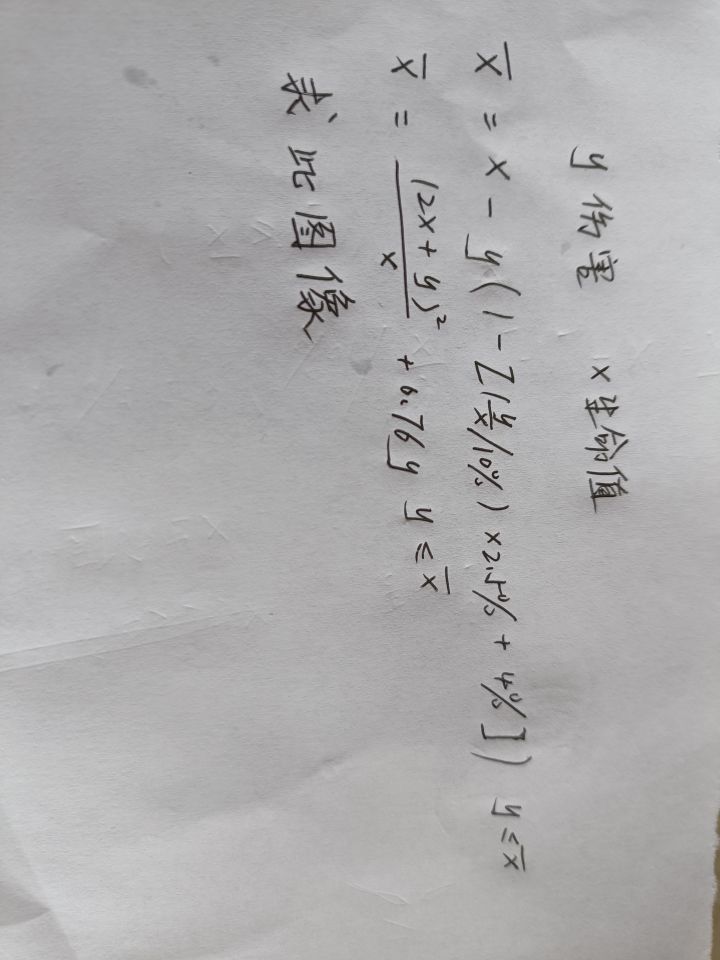 y 伤害 x 生命值
x̄ = x - y(1-[(y/x/10%)×2.5%+4%]) y≤x̄
x̄ = (2x+y)²/x + 0.76y y≤x̄
求此图像